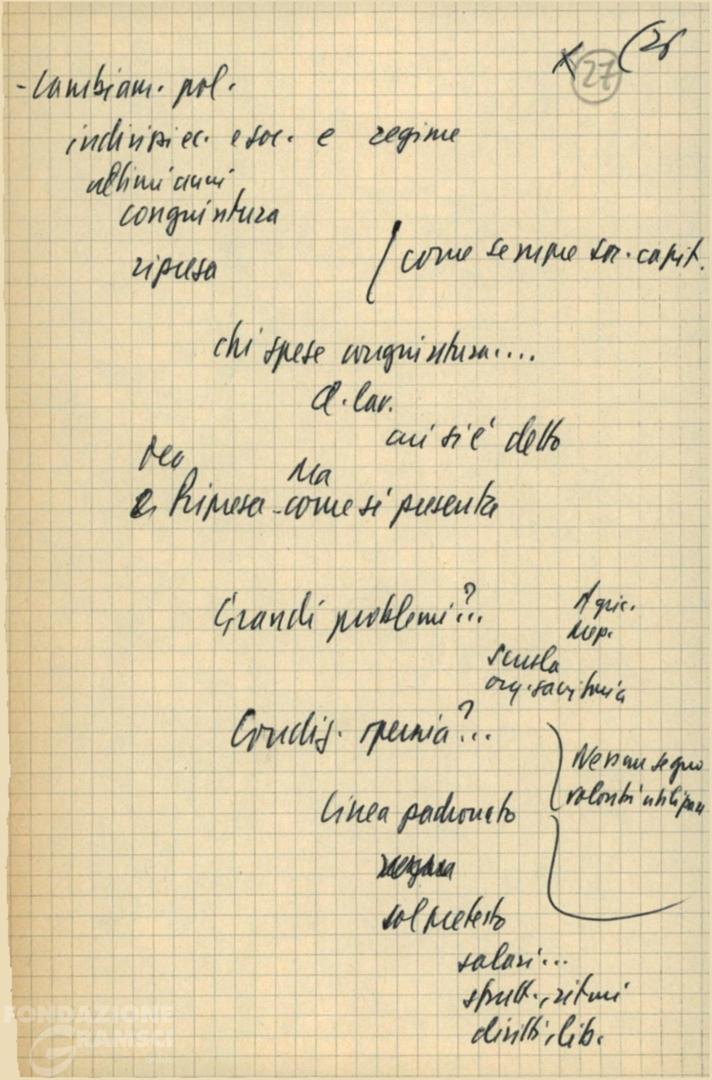 27 (26
- Cambiam. pol.
indirizzi ec. e soc. e regime
ultimi anni
congiuntura
ripresa
come sempre soc. capit.
chi spese congiuntura....
cl. lav.
cui si è detto
Ma
Ripresa - come si presenta
Grandi problemi?..
Agric.
Mep.
scuola
org. sanitaria
Condiz. operaia?..
Nessun segno
Linea padronato
sul pretesto
salari...
sfrutt., ritmi
diritti, lib.
FONDAZIONE
GRAMSCI